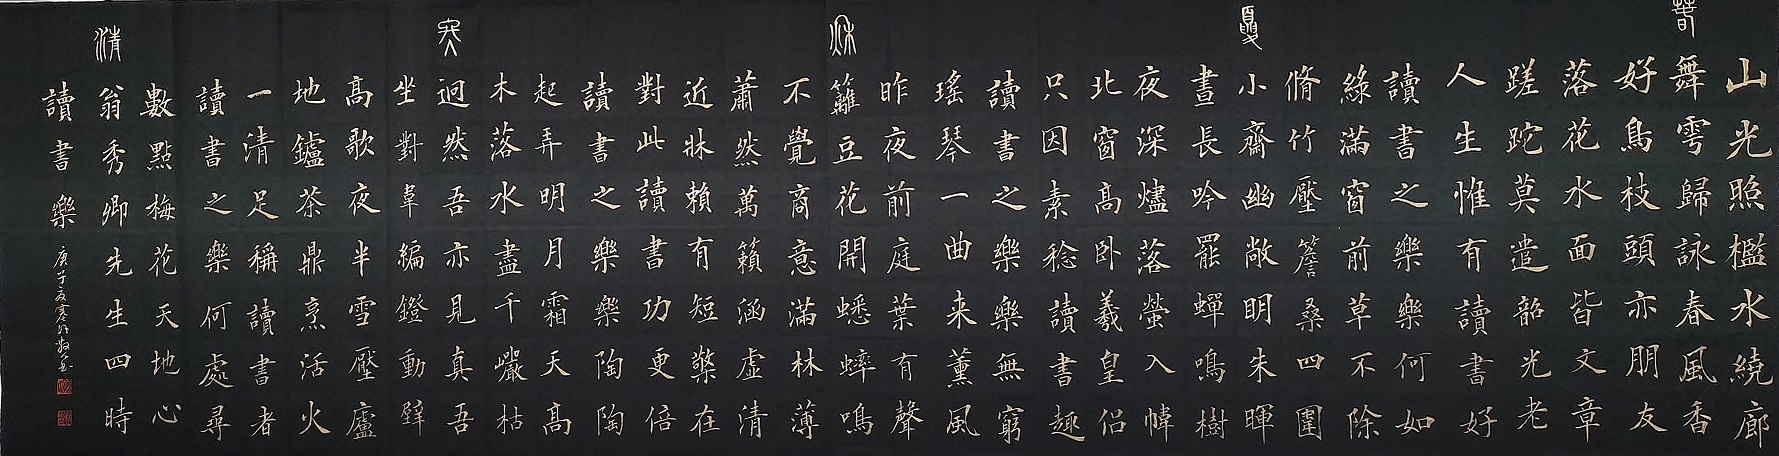 山光照檻水繞廊
舞雩歸詠春風香
好鳥枝頭亦朋友
落花水面皆文章
蹉跎莫遣韶光老
人生惟有讀書好
讀書之樂樂何如
綠滿窗前草不除
脩竹壓簷桑四圍
小齋幽敞明朱暉
晝長吟罷蟬鳴樹
夜深燼落螢入幃
北窗高卧羲皇侣
只因素稔讀書趣
讀書之樂樂無窮
瑤琴一曲来薰風
昨夜前庭葉有聲
籬豆花開蟋蟀鳴
不覺商意滿林薄
蕭然萬籟涵虛清
近牀賴有短檠在
對此讀書功更倍
讀書之樂樂陶陶
起弄明月霜天高
木落水盡千巖枯
迥然吾亦見真吾
坐對韋編鐙動壁
高歌夜半雪壓廬
地鑪茶鼎烹活火
一清足稱讀書者
讀書之樂何處尋
數點梅花天地心
翁秀卿先生四時
讀書樂
夏
秌
庚子